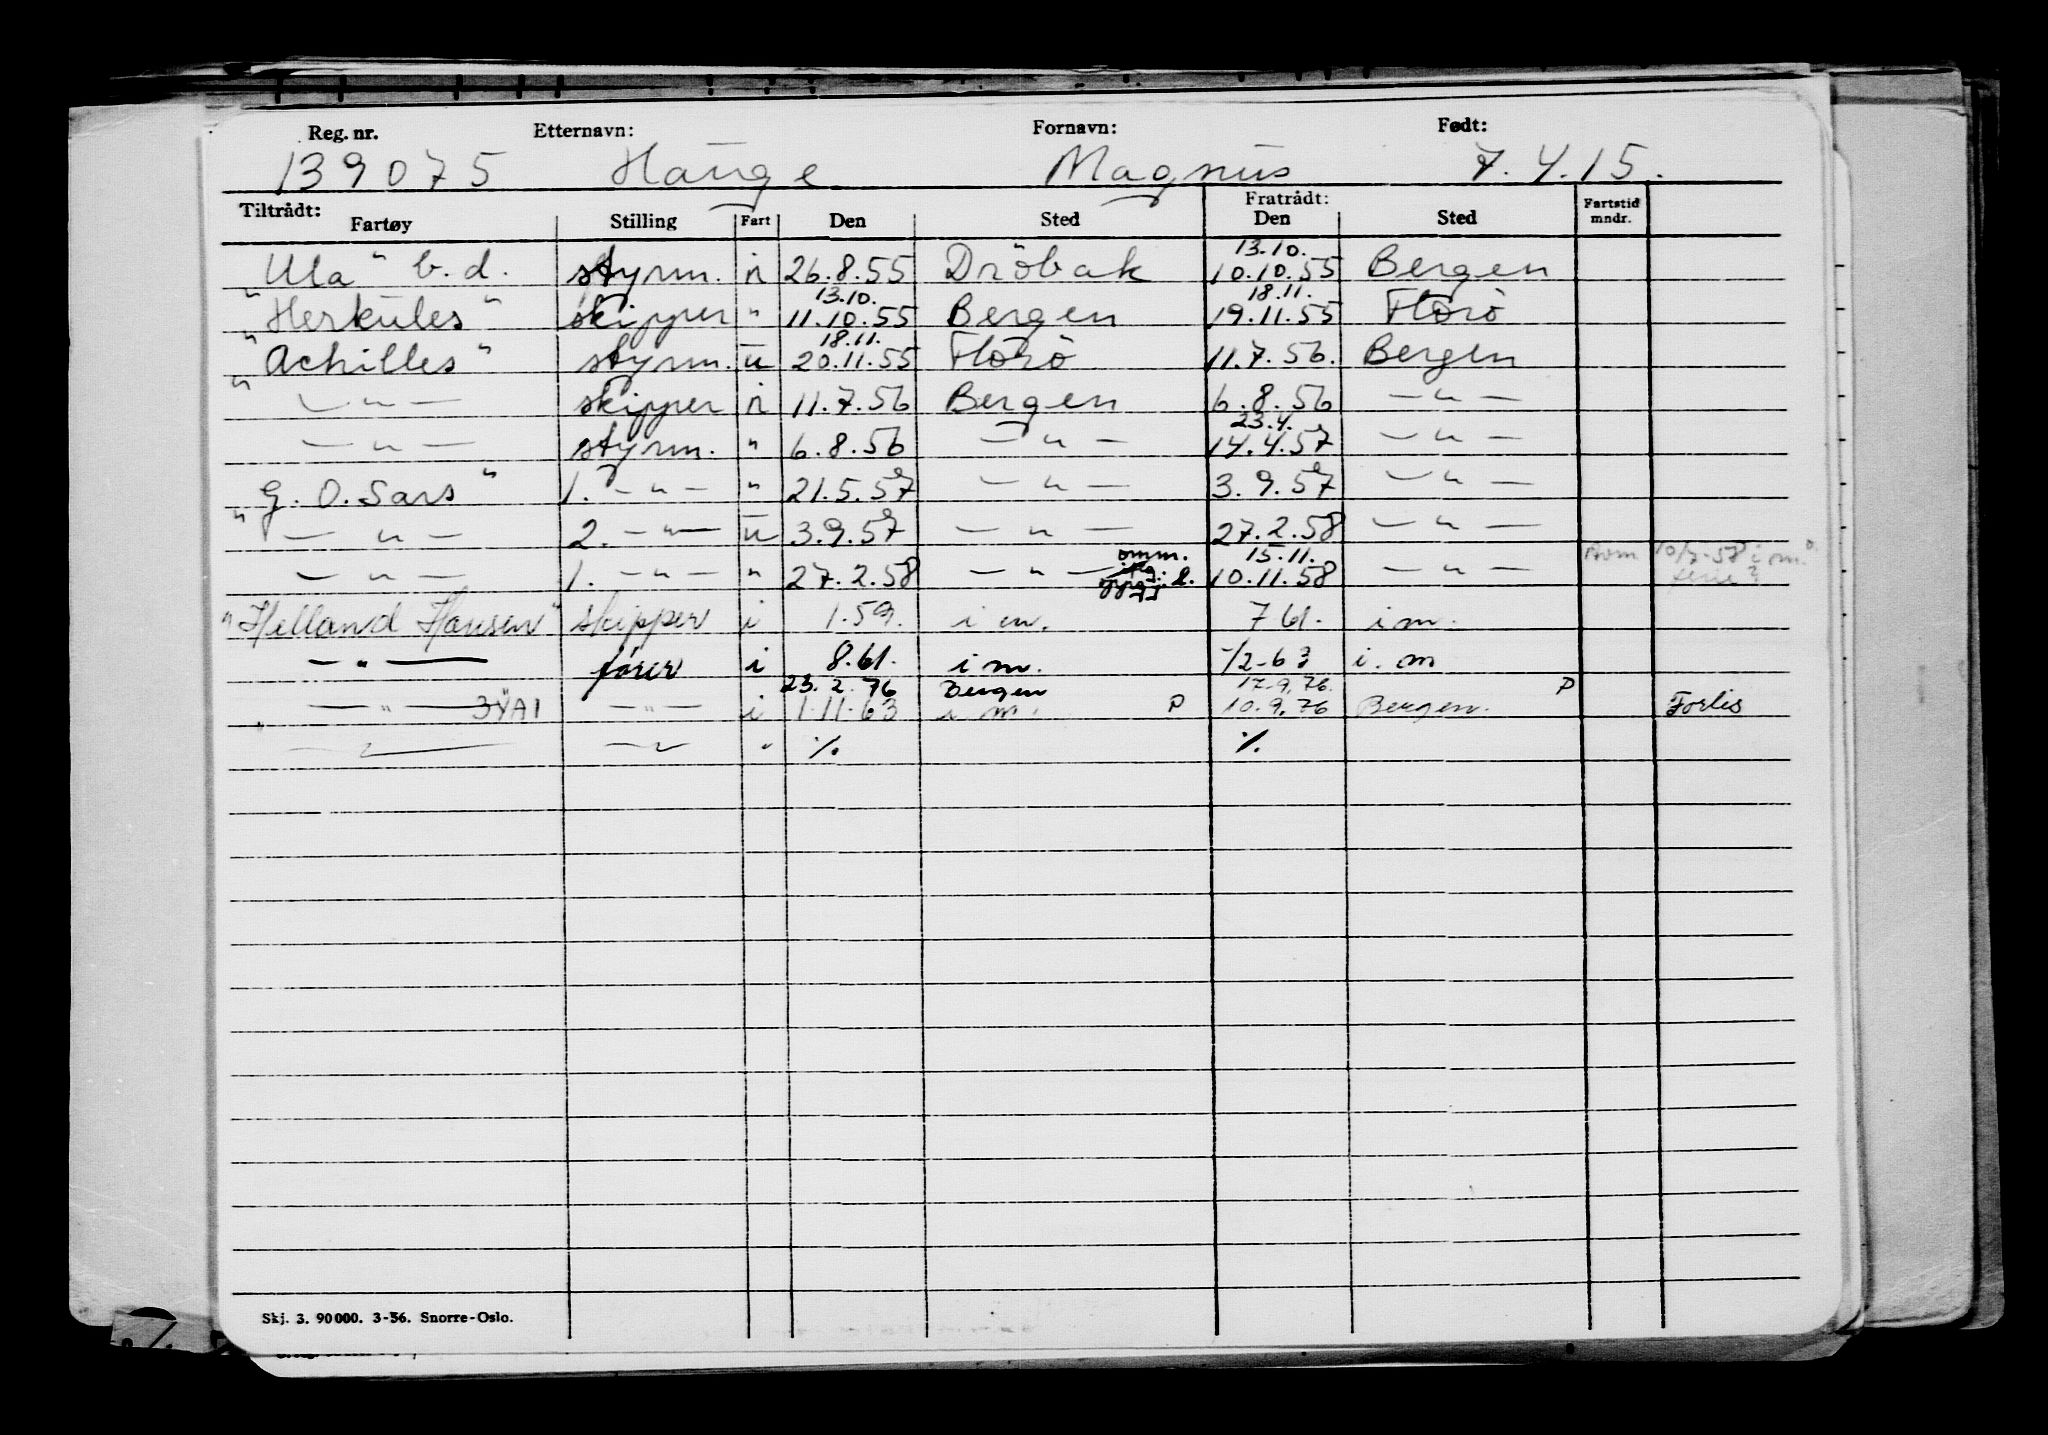 Reg. nr. Etternavn: Fornavn: Født:
139075 Hauge Magnus 7.4.15.
Tiltrådt: Fratrådt:
Fartøy Stilling Fart Den Sted Den Sted Fartstid mndr.
13.10.
"Ula" b.d. styrm. n 26.8.55 Dröbak 10.10.55 Bergen
13.10. 18.11.
"Herkules" skipper " 11.10.55 Bergen 19.11.55 Florö
18.11.
"Achilles" styrm. u 20.11.55 Florö 11.7.56. Bergen
— " — skipper n 11.7.56 Bergen 6.8.56 — " —
23.4.
— " — styrm. " 6.8.56 — " — 14.4.57 — " —
"G. O. Sars" 1. — " — " 21.5.57 — " — 3.9.57 — " —
— " — 2. — " — u 3.9.57 — " — 27.2.58 — " —
omm. 15.11.
— " — 1. — " — " 27.2.58 — " — 10.11.58 — " — 10/7-58 i m.
"Helland Hansen" skipper i 1.59. i m. 7 61. i m.
— " — fører i 8.61. i m. 1/2-63 i. m
23.2.76 Bergen 17.9.76. P
— " — 3YAI — " — i 1.11.63 i m. P 10.9.76 Bergen. Forlis
— " — — " — " %. %.
Skj. 3. 90000. 3-56. Snorre-Oslo.